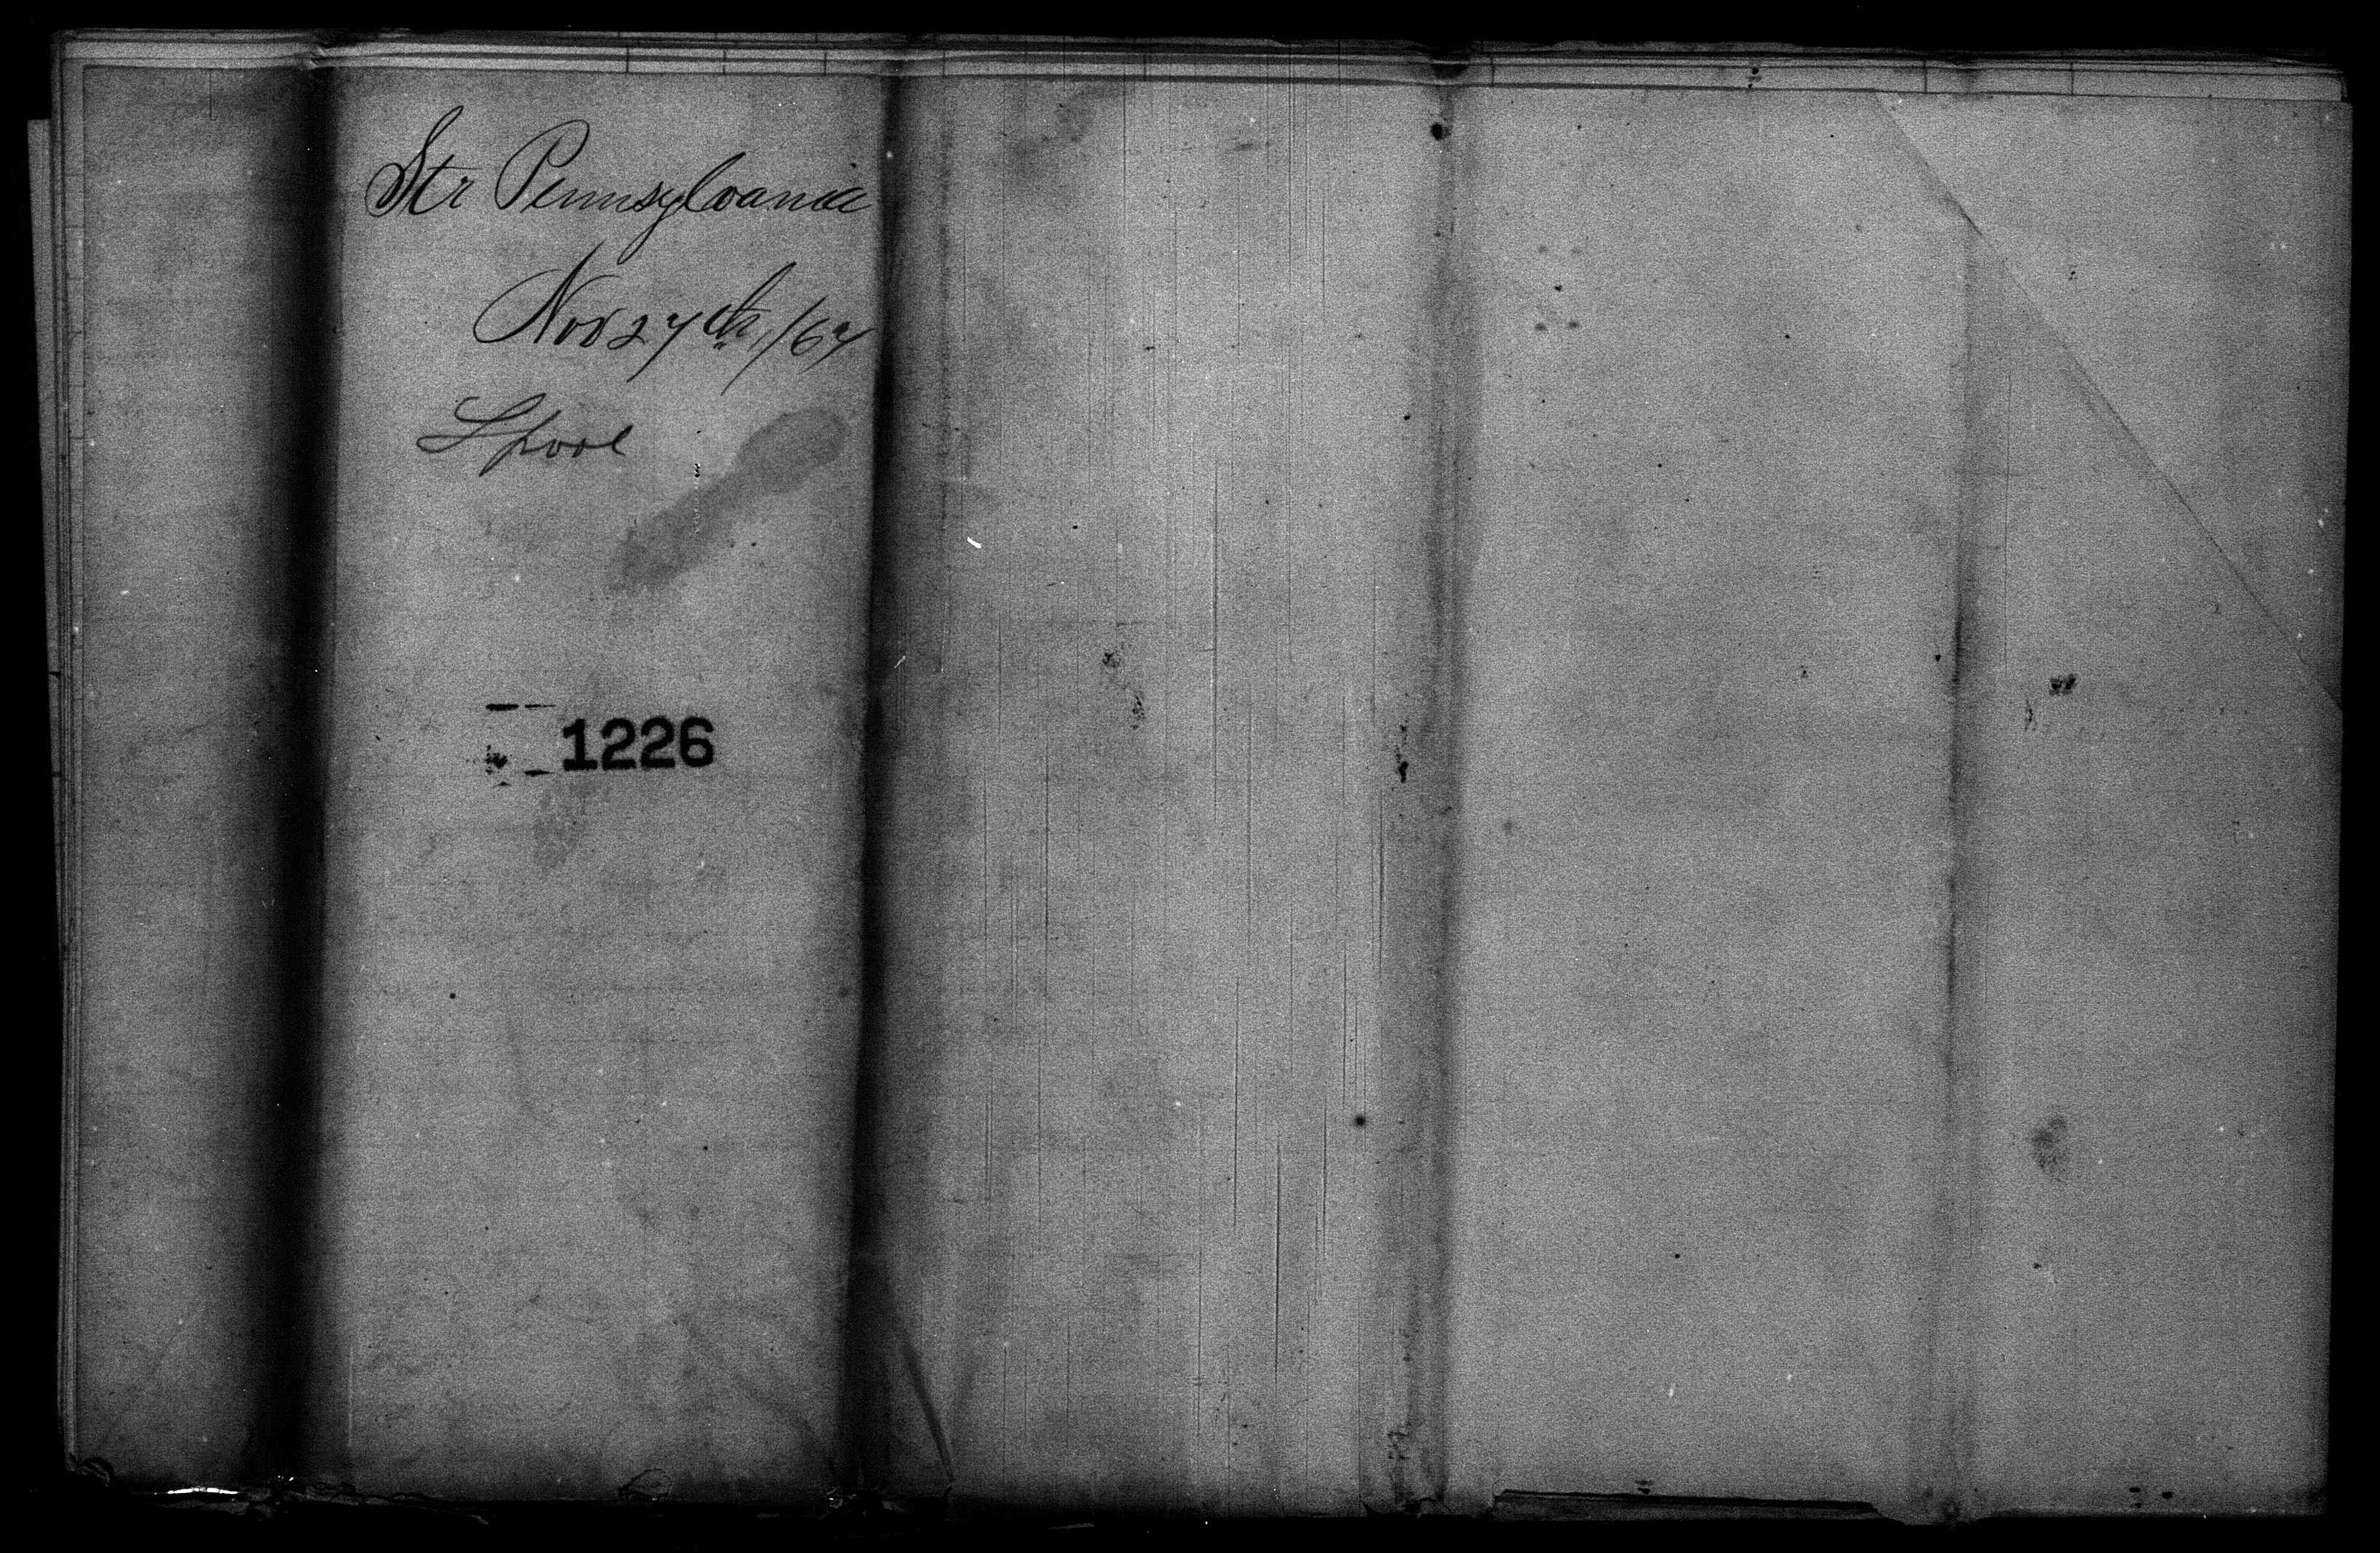 Str Pennsylvania
Nov 27th/67
Lpool
1226